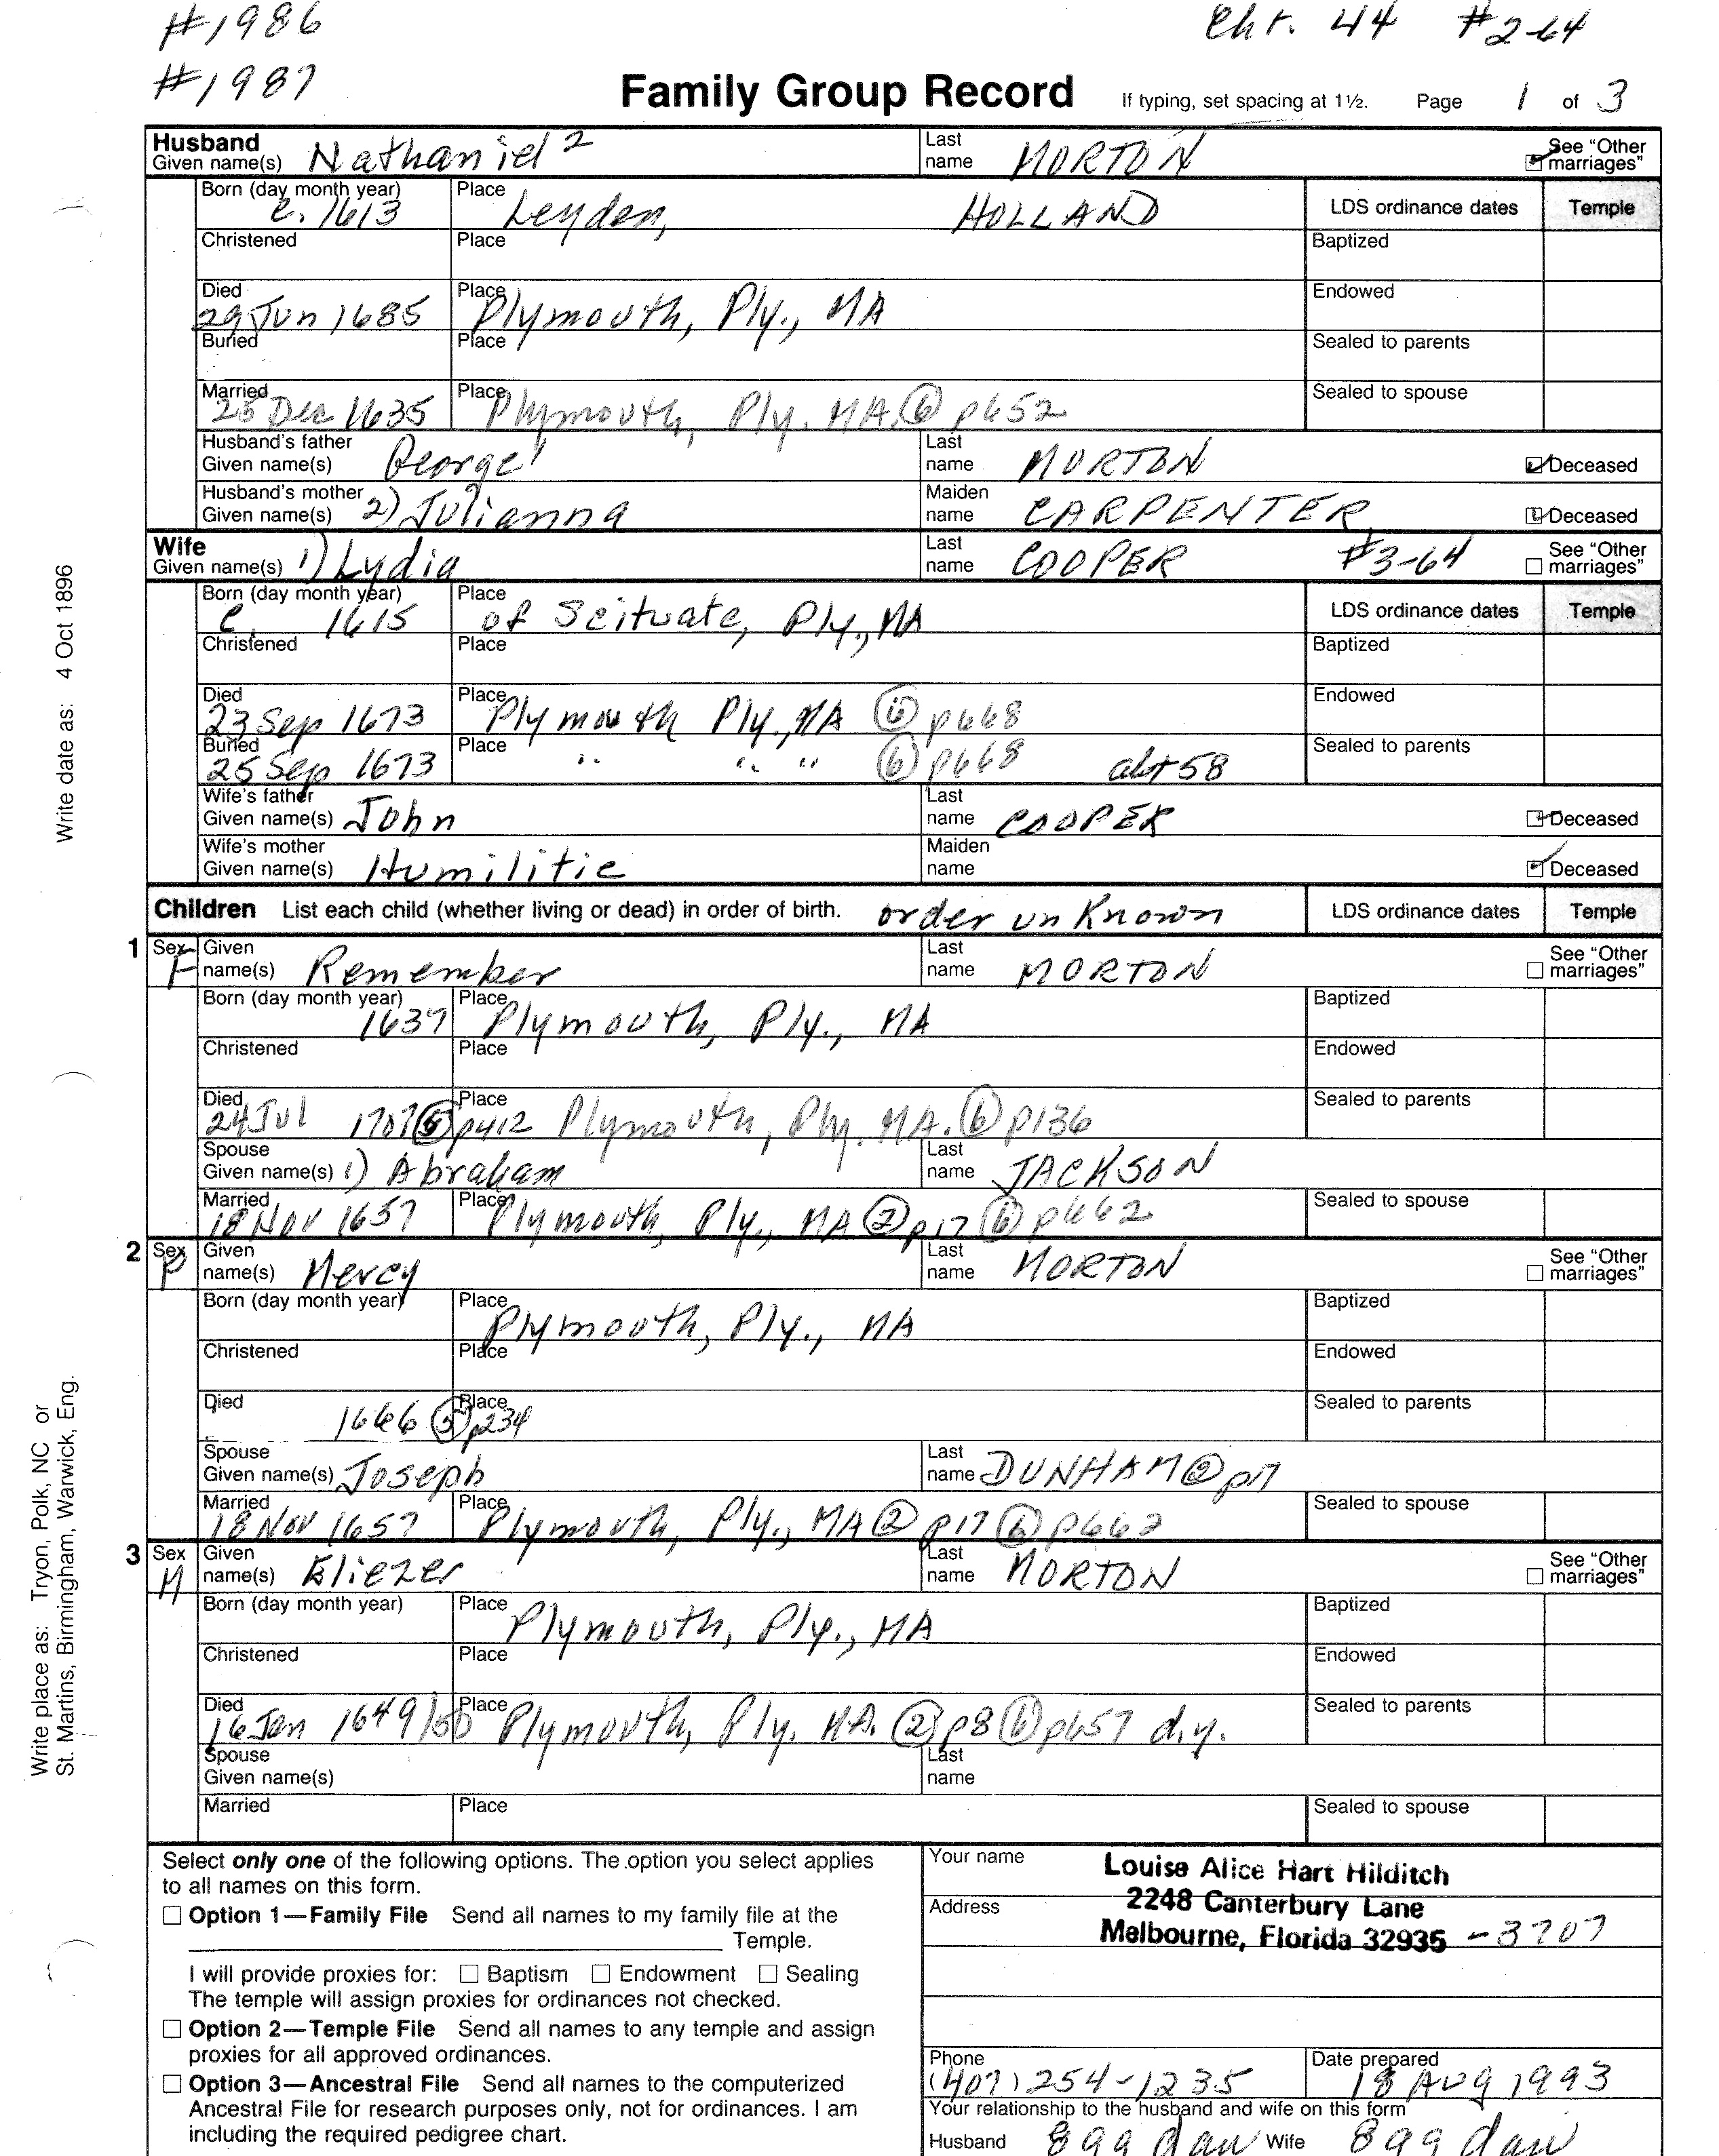 #1986
Cht. 44 #2-64
#1987
Family Group Record If typing, set spacing at 1½. Page 1 of 3
Husband
Given name(s) Nathaniel 2 Last name MORTON See "Other marriages"
Born (day month year) c. 1613 Place Leyden, HOLLAND LDS ordinance dates Temple
Christened Place Baptized
Died 29 Jun 1685 Place Plymouth, Ply., MA Endowed
Buried Place Sealed to parents
Married 25 Dec 1635 Place Plymouth, Ply. MA. 6 p652 Sealed to spouse
Husband's father Given name(s) George 1 Last name MORTON Deceased
Husband's mother Given name(s) 2) Julianna Maiden name CARPENTER Deceased
Wife
Given name(s) 1) Lydia Last name COOPER #3-64 See "Other marriages"
Born (day month year) c. 1615 Place of Scituate, Ply., MA LDS ordinance dates Temple
Christened Place Baptized
Died 23 Sep 1673 Place Plymouth Ply., MA 6 p668 Endowed
Buried 25 Sep 1673 Place " " " 6 p668 abt 58 Sealed to parents
Wife's father Given name(s) John Last name COOPER Deceased
Wife's mother Given name(s) Humilitie Maiden name Deceased
Children List each child (whether living or dead) in order of birth. order unknown LDS ordinance dates Temple
1 Sex F Given name(s) Remember Last name MORTON See "Other marriages"
Born (day month year) 1637 Place Plymouth, Ply., MA Baptized
Christened Place Endowed
Died 24 Jul 1707 5 p412 Place Plymouth, Ply. MA. 6 p136 Sealed to parents
Spouse Given name(s) 1) Abraham Last name JACKSON
Married 18 Nov 1657 Place Plymouth, Ply., MA 2 p17 6 p662 Sealed to spouse
2 Sex F Given name(s) Mercy Last name MORTON See "Other marriages"
Born (day month year) Place Plymouth, Ply., MA Baptized
Christened Place Endowed
Died 1666 5 p234 Place Sealed to parents
Spouse Given name(s) Joseph Last name DUNHAM 2 p17
Married 18 Nov 1657 Place Plymouth, Ply., MA 2 p17 6 p662 Sealed to spouse
3 Sex M Given name(s) Eliezer Last name MORTON See "Other marriages"
Born (day month year) Place Plymouth, Ply., MA Baptized
Christened Place Endowed
Died 16 Jan 1649/50 Place Plymouth, Ply. MA. 2 p8 6 p657 d.y. Sealed to parents
Spouse Given name(s) Last name
Married Place Sealed to spouse
Select only one of the following options. The option you select applies
to all names on this form.
Option 1—Family File Send all names to my family file at the
Temple.
I will provide proxies for: Baptism Endowment Sealing
The temple will assign proxies for ordinances not checked.
Option 2—Temple File Send all names to any temple and assign
proxies for all approved ordinances.
Option 3—Ancestral File Send all names to the computerized
Ancestral File for research purposes only, not for ordinances. I am
including the required pedigree chart.
Your name Louise Alice Hart Hilditch
Address 2248 Canterbury Lane
Melbourne, Florida 32935 -3707
Phone (407) 254-1235 Date prepared 18 Aug 1993
Your relationship to the husband and wife on this form
Husband 8 gg dau Wife 8 gg dau
Write date as: 4 Oct 1896
Write place as: Tryon, Polk, NC or
St. Martins, Birmingham, Warwick, Eng.